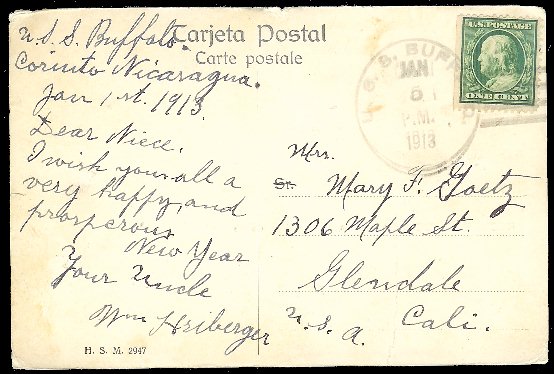 Tarjeta Postal
Carte postale
U.S.S. Buffalo.
Corinto Nicaragua.
Jan 1st. 1913.
Dear Niece.
I wish you all a
very happy, and
prosperous
New Year
Your Uncle
Wm Heiberger
H. S. M. 2947
U.S. POSTAGE
ONE CENT
U.S.S. BUFF
JAN
5
P.M.
1913
Mrs.
Sr.
Mary F. Goetz
1306 Maple St.
Glendale
Cali.
U.S.A.